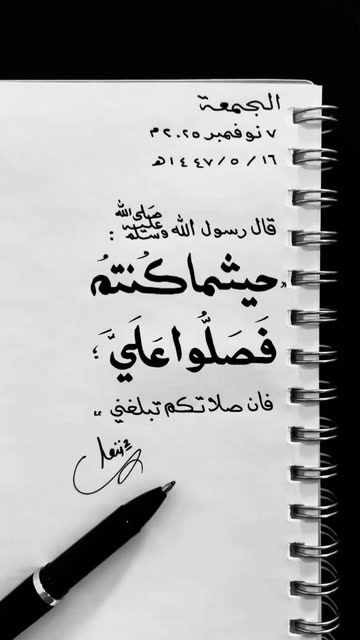 الجمعة
٧ نوفمبر ٢٠٢٥م
١٦ / ٥ / ١٤٤٧هـ
قال رسول الله صلى الله عليه وسلم :
"حيثما كُنتمُ
فَصَلُّوا عَلَيَّ ؛
فان صلاتكم تبلغني "